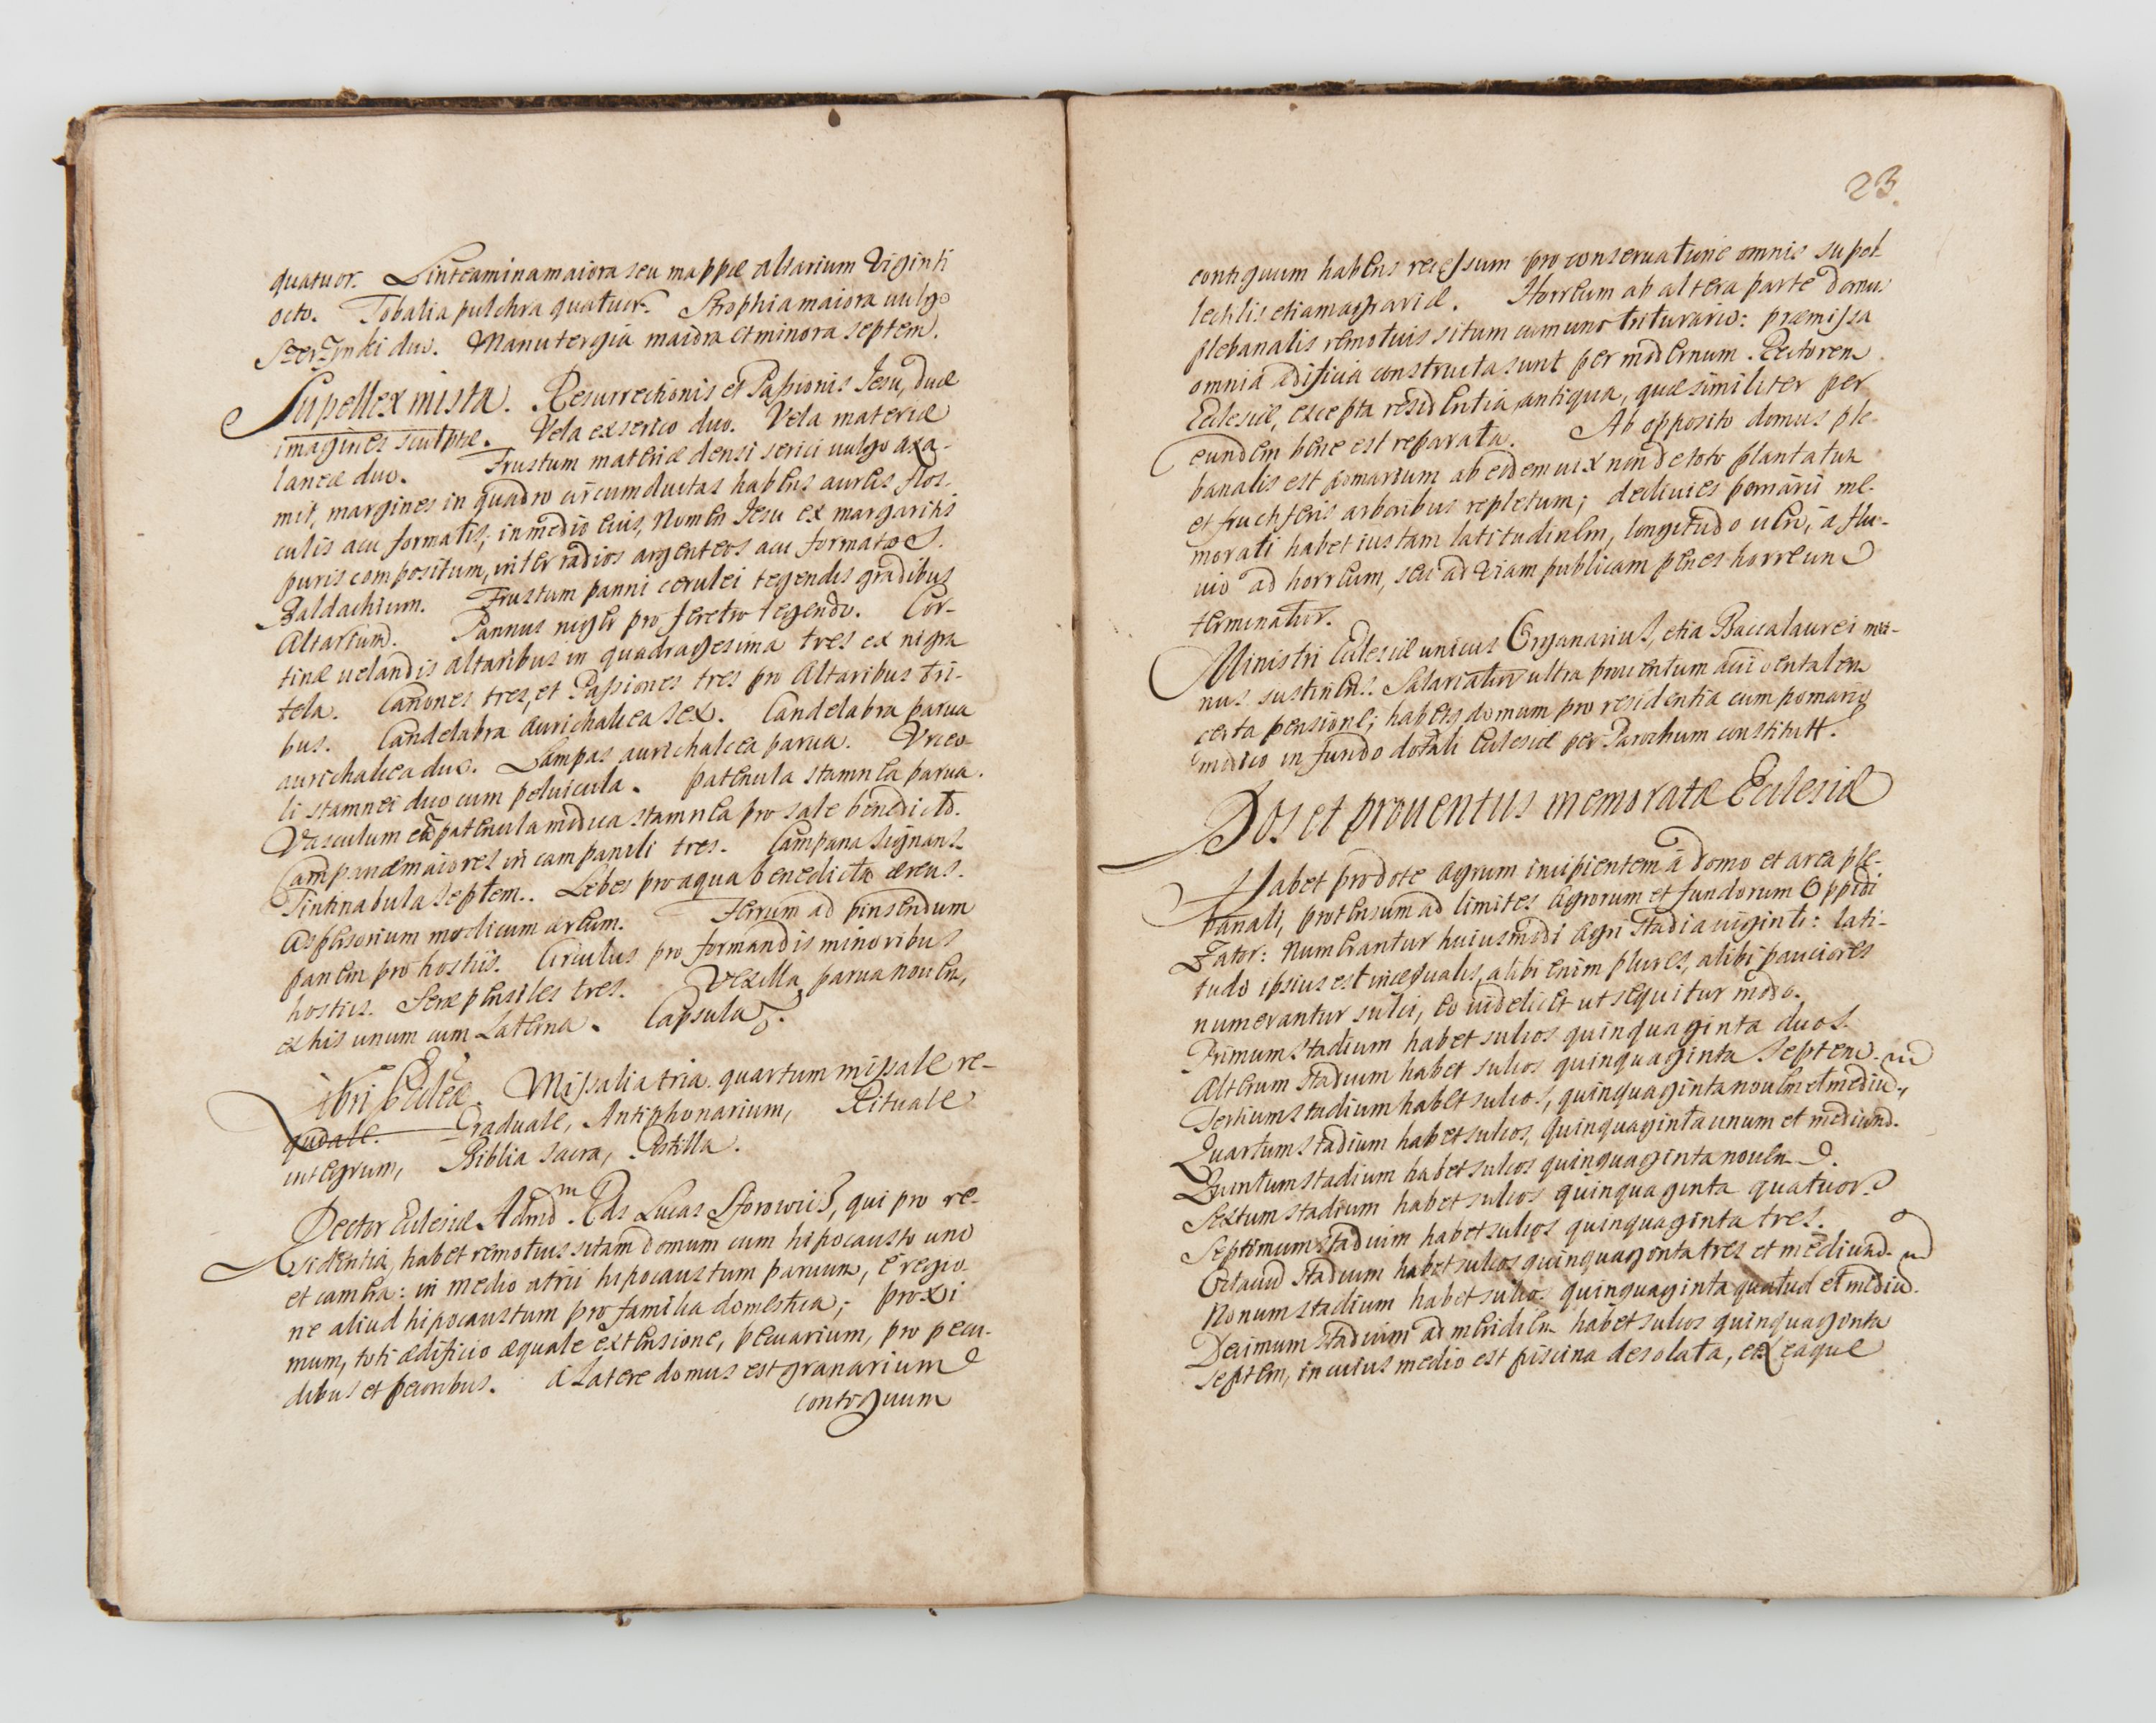 quatuor. Linteamina maiora seu mappæ altarium Viginti
octo. Tobalia pulchra quatuor. Strophia maiora uulgo
duo. Manutergia maiora et minora septem.
Supellex mista. Resurrectionis et Passionis Iesu, duæ
imagines sculptæ. Vela ex serico duo. Vela materiæ
laneæ duo. Frustum materiæ densi serici uulgo axa-
mit, margines in quadro circumductas habens aureis flos-
culis acu formatis; in medio eius, Nomen Iesu ex margaritis
puris compositum, inter radios argenteos acu formatos.
Baldachium. Frustum panni cerulei tegendis gradibus
Altarium. Pannus niger pro feretro tegendo. Cor-
tinæ uelandis altaribus in quadragesima tres ex nigra
tela. Canones tres, et Passiones tres pro Altaribus tri-
bus. Candelabra aurichalcea sex. Candelabra parua
aurichalcea duo. Lampas aurichalcea parua. Vrceo-
li stamnei duo cum peluicula. patenula stamnea parua.
Vasculum cū patenula modica stamnea pro sale benedicto.
Campanæ maiores in campanili tres. Campana signans.
Tintinabula septem. Lebes pro aqua benedicta æreus.
Aspersorium modicum æreum. Ferrum ad pinsendum
panem pro hostiis. Circulus pro formandis minoribus
hostiis. Seræ pensiles tres. Vexilla parua nouem,
ex his unum cum Laterna. Capsula
Libri Ecclēæ. Missalia tria. quartum missale re-
quiale. Graduale, Antiphonarium, Rituale
integrum, Biblia sacra, Postilla.
Rector Ecclesiæ Admō Rds Lucas qui pro re-
sidentia, habet remotius sitam domum cum hipocausto uno
et camera: in medio atrii hipocaustum paruum, è regio-
ne aliud hipocaustum pro familia domestica; proxi
mum, toti ædificio æquale extensione, pecuarium, pro pecu-
dibus et pecoribus. à latere domus est granarium
contiguum
23.
contiguum habens recessum pro conseruatione omnis supel-
lectilis etiam agrariæ. Horreum ab altera parte domus
plebanalis remotius situm cum uno triturario: præmissa
omnia ædificia constructa sunt per modernum Rectorem
Ecclesiæ, excepta residentia antiqua, quæ similiter per
eundem bene est reparata. Ab opposito domus ple-
banalis est pomarium ab eodem uix non de toto plantatum
et fructiferis arboribus repletum; decliuies pomarii me-
morati habet iustam latitudinem, longitudo uerò, à flu-
uio ad horreum, seu ad Viam publicam penes horreum
terminatur.
Ministri Ecclesiæ unicus Organarius, etiā Baccalaurei mu-
nus sustinens. Salariatur ultra prouentum accidentalem
certa pensione; habens domum pro residentia cum pomario
modico in fundo dotali Ecclesiæ per Parochum constitutā.
Dos et prouentus memoratæ Ecclesiæ
Habet pro dote Agrum incipientem à domo et area ple-
banali, protensum ad limites Agrorum et fundorum Oppidi
Zator: Numerantur huiusmodi agri Stadia uiginti: lati-
tudo ipsius est inæqualis, alibi enim plures, alibi pauciores
numerantur sulci, eo uidelicet ut sequitur modo.
Primum stadium habet sulcos quinquaginta duos.
Alterum Stadium habet sulcos quinquaginta septem.
Tertium stadium habet sulcos, quinquaginta nouem et mediū.
Quartum stadium habet sulcos, quinquaginta unum et medium.
Quintum stadium habet sulcos quinquaginta nouem.
Sextum stadium habet sulcos quinquaginta quatuor.
Septimum stadium habet sulcos quinquaginta tres.
Octauū Stadium habet sulcos quinquaginta tres et medium.
Nonum stadium habet sulcos quinquaginta quatuor et mediū.
Decimum Stadium ad meridiem habet sulcos quinquaginta
septem, in cuius medio est piscina desolata, ex eaque